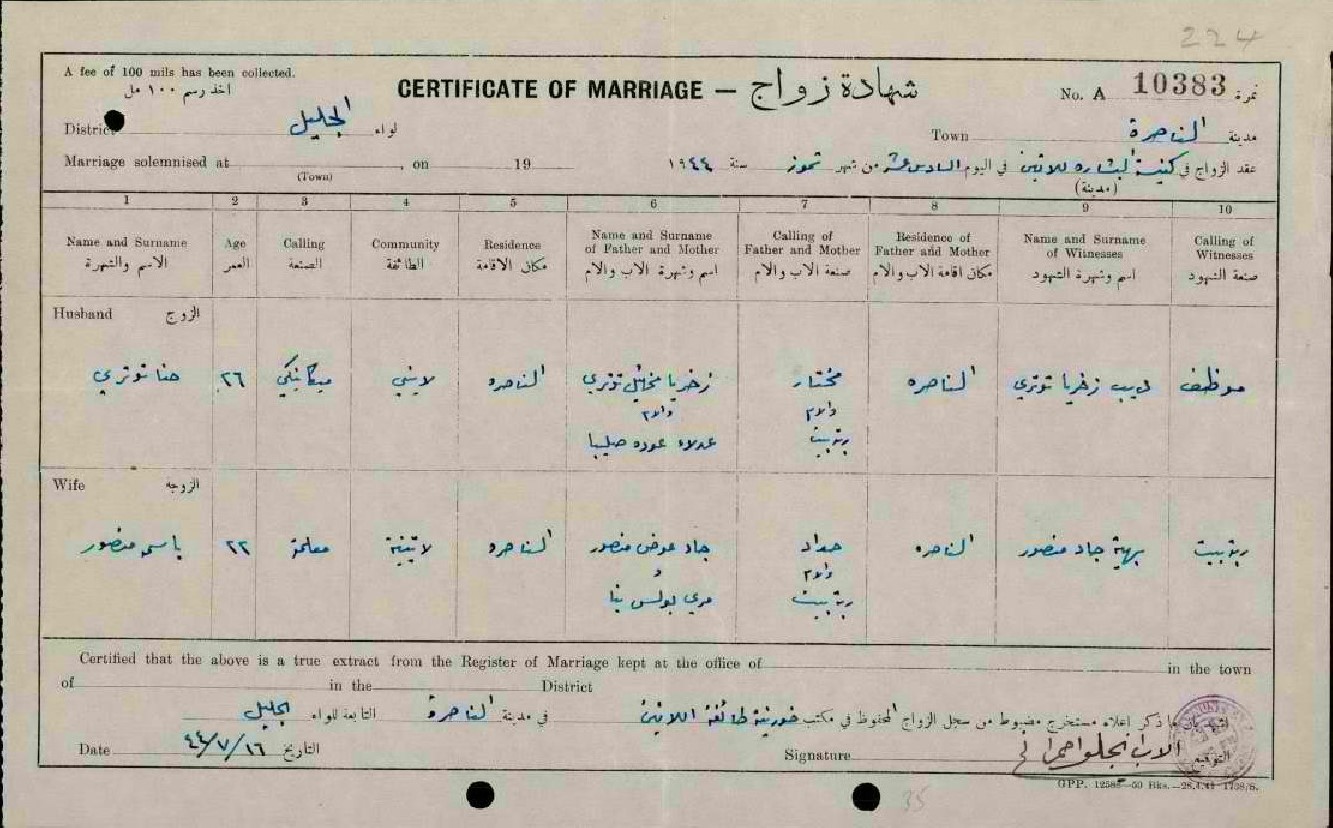 224
A fee of 100 mils has been collected.
اخذ رسم ١٠٠ مل
CERTIFICATE OF MARRIAGE — شهادة زواج
No. A 10383 نمرة
District الجليل لواء
Town الناصرة مدينة
Marriage solemnised at , on 19
(Town)
عقد الزواج في كنيسة البشاره للاتين في اليوم السادس عشر من شهر تموز سنة ١٩٤٤
(مدينة)
1 2 3 4 5 6 7 8 9 10
Name and Surname
الاسم والشهرة
Age
العمر
Calling
الصنعة
Community
الطائفة
Residence
مكان الاقامة
Name and Surname
of Father and Mother
اسم وشهرة الاب والام
Calling of
Father and Mother
صنعة الاب والام
Residence of
Father and Mother
مكان اقامة الاب والام
Name and Surname
of Witnesses
اسم وشهرة الشهود
Calling of
Witnesses
صنعة الشهود
Husband الزوج
حنا توتري
٢٦
ميكانيكي
لاتيني
الناصره
زخريا مخائيل توتري
والام
عوده صليبا
مختار
والام
ربة بيت
الناصره
ديب زخريا توتري
موظف
Wife الزوجة
منصور
٢٢
معلمة
لاتينية
الناصره
جاد عوض منصور
و
مري بولس
حداد
والام
ربة بيت
الناصره
بهية جاد منصور
ربة بيت
Certified that the above is a true extract from the Register of Marriage kept at the office of in the town
of in the District
ما ذكر اعلاه مستخرج مضبوط من سجل الزواج المحفوظ في مكتب خورنية طائفة اللاتين في مدينة الناصرة التابعة للواء الجليل
Date ٤٤/٧/١٦ التاريخ
Signature الاب التوقيع
GPP. 12585—50 Bks.
35